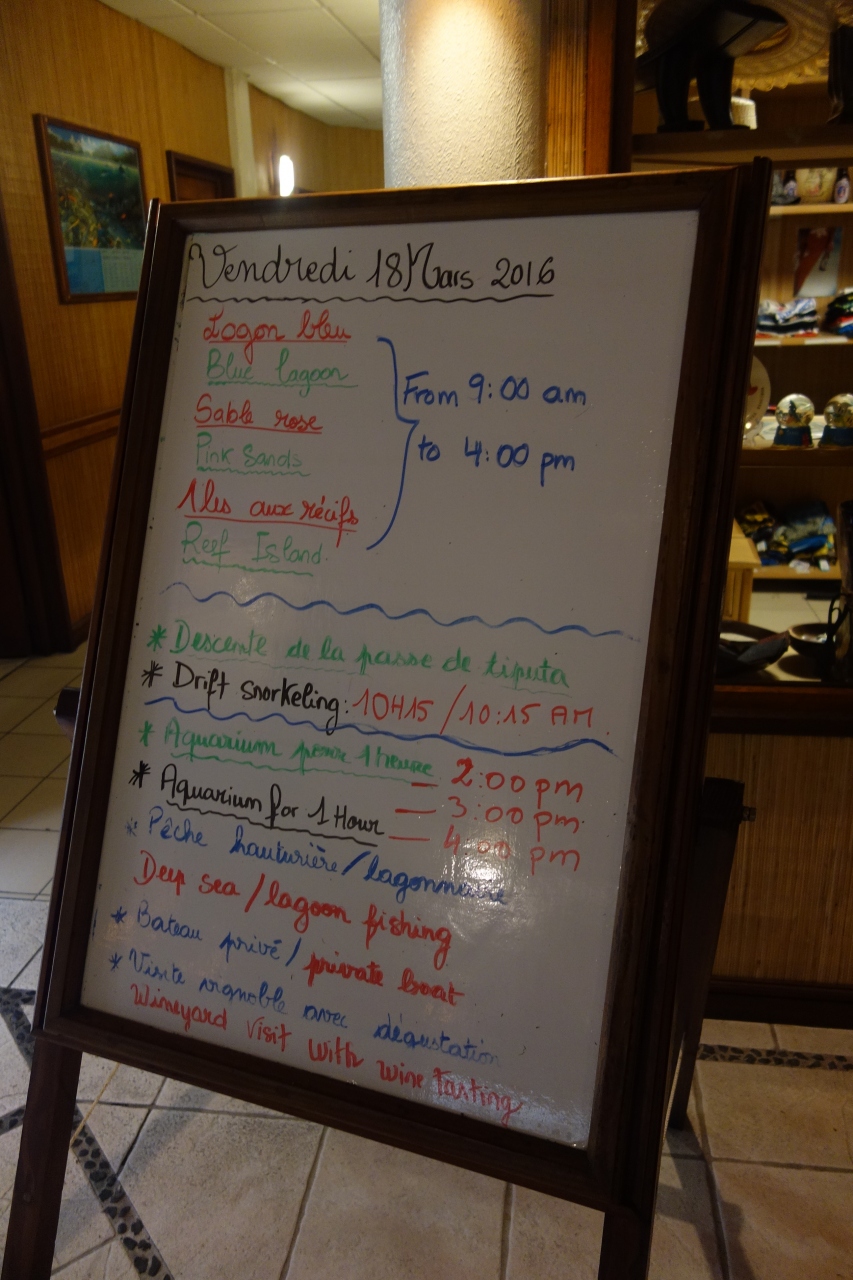 Vendredi 18 Mars 2016
Lagon bleu
Blue lagoon
From 9:00 am
Sable rose
to 4:00 pm
Pink Sands
Iles aux récifs
Reef Island
* Descente de la passe de tiputa
* Drift snorkeling: 10H15 / 10:15 AM
* Aquarium pour 1 heure — 2:00 pm
— 3:00 pm
* Aquarium for 1 Hour — 4:00 pm
* Pêche hauturière / lagonnaire
Deep sea / lagoon fishing
* Bateau privé / private boat
* Visite vignoble avec dégustation
Wineyard visit with wine tasting